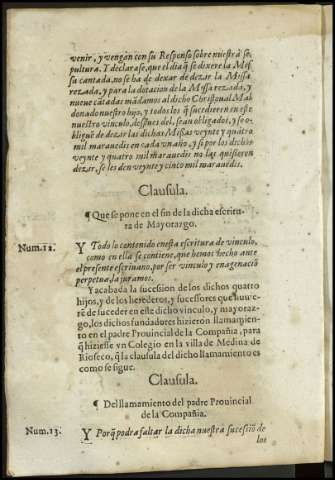 venir, y vengan con su Responso sobre nuestrá se-
pultura. Y declarase, que el dia q̃ se dixere la Mis-
sa cantada, no se ha de dexar de dezir la Missa
rezada, y para la dotacion de la Missa rezada, y
nueue cãtadas mãdamos al dicho Christoual Mal
donado nuestro hijo, y todos los q̃ sucedieren en este
nuestro vinculo, despues del, sean obligados, y se o-
bliguẽ de dezir las dichas Missas veynte y quatro
mil marauedis en cada vn año, y si por los dichos
veynte y quatro mil marauedis no las quisieren
dezir, se les den veynte y cinco mil marauedis.
Clausula.
¶ Que se pone en el fin de la dicha escritu-
ra de Mayorazgo.
Num.12.
Y Todo lo contenido en esta escritura de vinculo,
como en ella se contiene, que hemos hecho ante
el presente escriuano, por ser vinculo y enagenaciõ
perpetua, la juramos.
Y acabada la sucession de los dichos quatro
hijos, y de los herederos, y sucessores que huuie-
rẽ de suceder en este dicho vinculo, y mayoraz-
go, los dichos fundadores hizierõn llamamien-
to en el padre Prouincial de la Compañia, para
q̃ hiziesse vn Colegio en la villa de Medina de
Rioseco, q̃ la clausula del dicho llamamiento es
como se sigue.
Clausula.
¶ Del llamamiento del padre Prouincial
de la Compañia.
Num.13.
Y Porq̃ podra faltar la dicha nuestra sucessiõ de
los